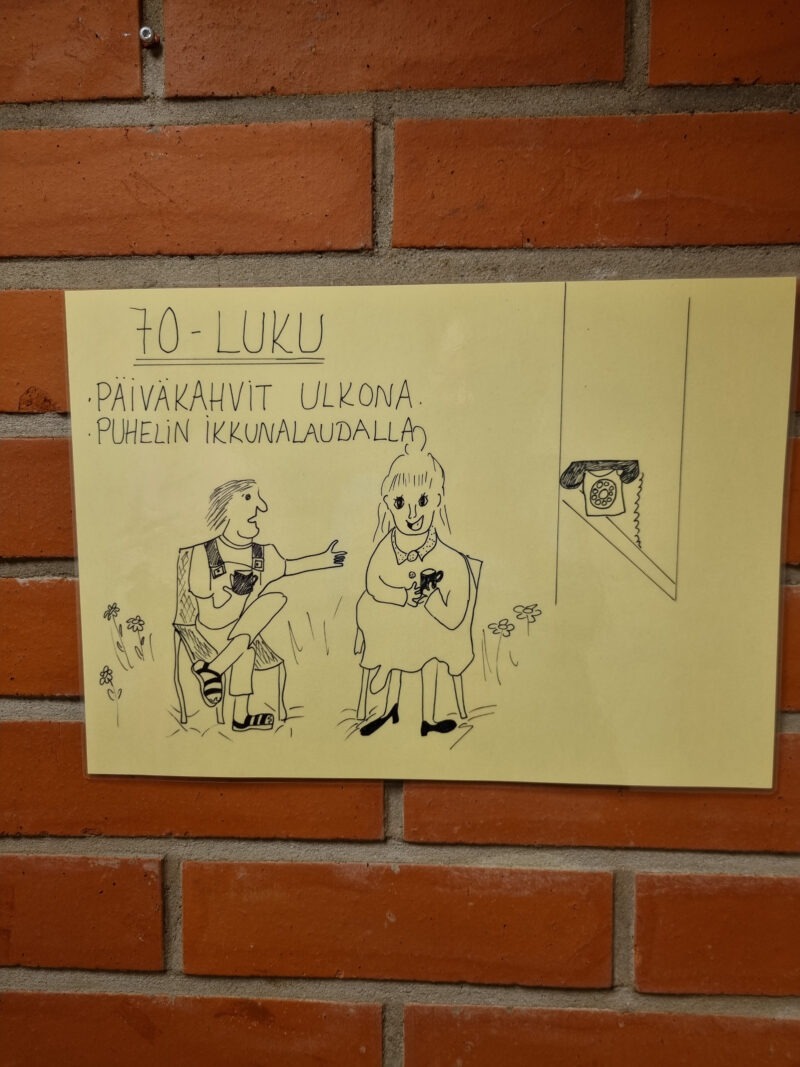 70-LUKU
· PÄIVÄKAHVIT ULKONA.
· PUHELIN IKKUNALAUDALLA